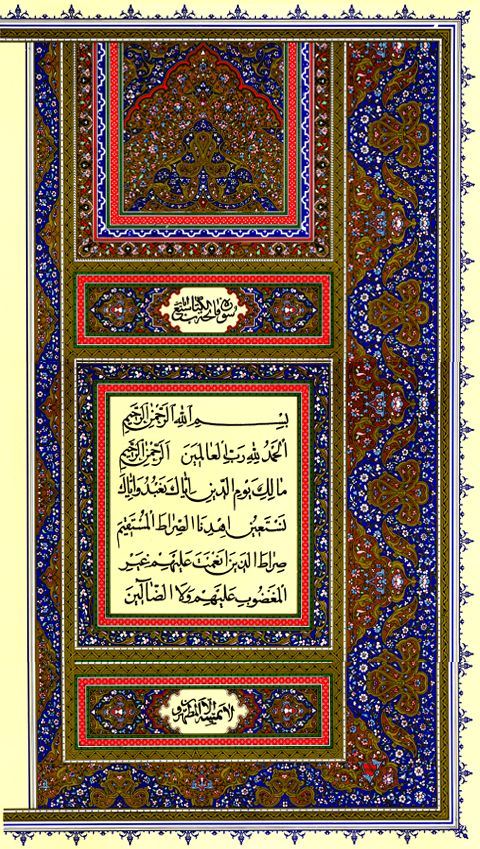 سورة فاتحة الكتاب سبع
بِسْمِ اللّٰهِ الرَّحْمٰنِ الرَّحِيمِ
اَلْحَمْدُ لِلّٰهِ رَبِّ الْعَالَمِينَ اَلرَّحْمٰنِ الرَّحِيمِ
مَالِكِ يَوْمِ الدِّينِ اِيَّاكَ نَعْبُدُ وَاِيَّاكَ
نَسْتَعِينُ اِهْدِنَا الصِّرَاطَ الْمُسْتَقِيمَ
صِرَاطَ الَّذِينَ اَنْعَمْتَ عَلَيْهِمْ غَيْرِ
الْمَغْضُوبِ عَلَيْهِمْ وَلَا الضَّآلِّينَ
لا يمسه الا المطهرون